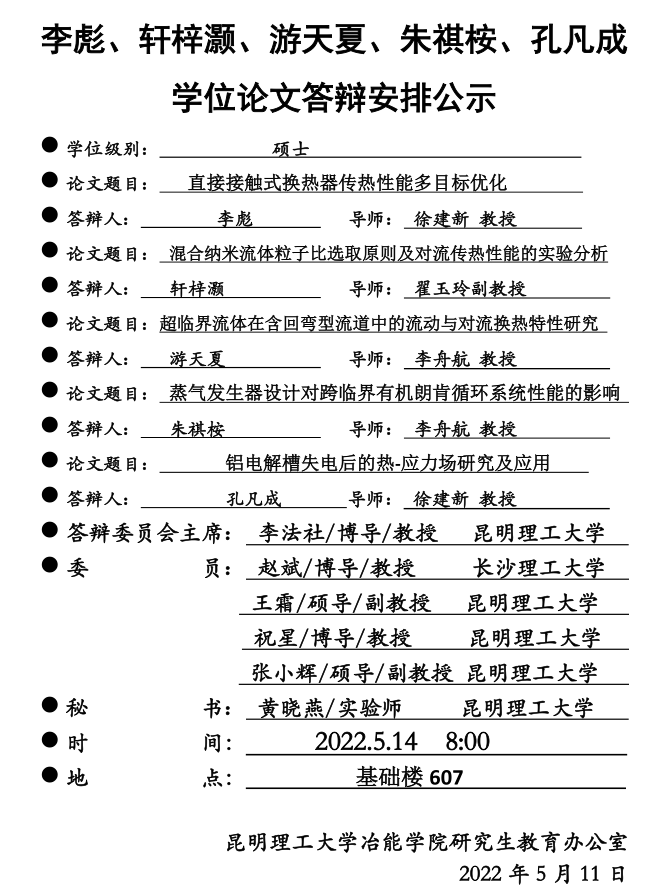 李彪、轩梓灏、游天夏、朱祺桉、孔凡成
学位论文答辩安排公示
● 学位级别： 硕士
● 论文题目： 直接接触式换热器传热性能多目标优化
● 答辩人： 李彪 导师： 徐建新 教授
● 论文题目： 混合纳米流体粒子比选取原则及对流传热性能的实验分析
● 答辩人： 轩梓灏 导师： 翟玉玲副教授
● 论文题目：超临界流体在含回弯型流道中的流动与对流换热特性研究
● 答辩人： 游天夏 导师： 李舟航 教授
● 论文题目： 蒸气发生器设计对跨临界有机朗肯循环系统性能的影响
● 答辩人： 朱祺桉 导师： 李舟航 教授
● 论文题目： 铝电解槽失电后的热-应力场研究及应用
● 答辩人： 孔凡成 导师： 徐建新 教授
● 答辩委员会主席： 李法社/博导/教授 昆明理工大学
● 委 员： 赵斌/博导/教授 长沙理工大学
王霜/硕导/副教授 昆明理工大学
祝星/博导/教授 昆明理工大学
张小辉/硕导/副教授 昆明理工大学
● 秘 书： 黄晓燕/实验师 昆明理工大学
● 时 间： 2022.5.14 8:00
● 地 点： 基础楼 607
昆明理工大学冶能学院研究生教育办公室
2022 年 5 月 11 日